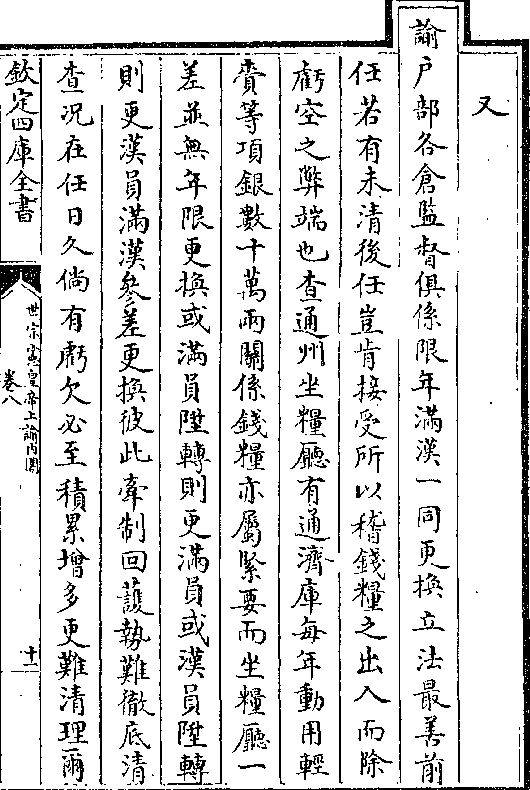 又
諭戶部各倉監督俱係限年滿漢一同更換立法最善前
任若有未清後任豈肯接受所以稽錢糧之出入而除
虧空之弊端也查通州坐糧廳有通濟庫每年動用輕
賫等項銀數十萬兩關係錢糧亦屬緊要而坐糧廳一
差並無年限更換或滿員陞轉則更滿員或漢員陞轉
則更漢員滿漢參差更換彼此牽制回護執難徹底清
查況在任日久倘有虧欠必至積累增多更難清理爾
欽定四庫全書
世宗憲皇帝上諭內閣
卷八
十一